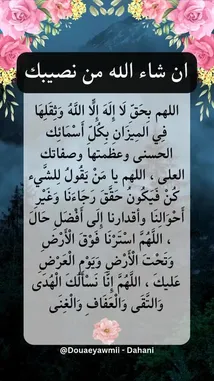 ان شاء الله من نصيبك
اللهم بِحَقّ لَا إِلَهَ إِلَّا اللَّهُ وَثِقَلِهَا
فِي المِيزَانِ بِكُلِّ أَسْمَائِكَ
الحسنى وعظمتها وصفاتك
العلى ، اللهم يا مَنْ يَقُولُ لِلشَّيء
كُنْ فَيَكُونُ حَقَّقَ رَجَاءَنَا وَغَيْرِ
أَحْوَالنَا وأقدارنا إِلَى أَفْضَلِ حَالَ
، اللَّهُمَّ اسْتَرْنَا فَوْقَ الْأَرْضِ
وَتَحْتَ الْأَرْضِ وَيَوْمِ الْعَرْضِ
عَليكَ ، اللَّهُمَّ إِنَّا نَسْأَلُكَ الْهُدَى
وَالتَّقَى وَالْعَفَافِ وَالْغِنَى
@Douaeyawmii - Dahani